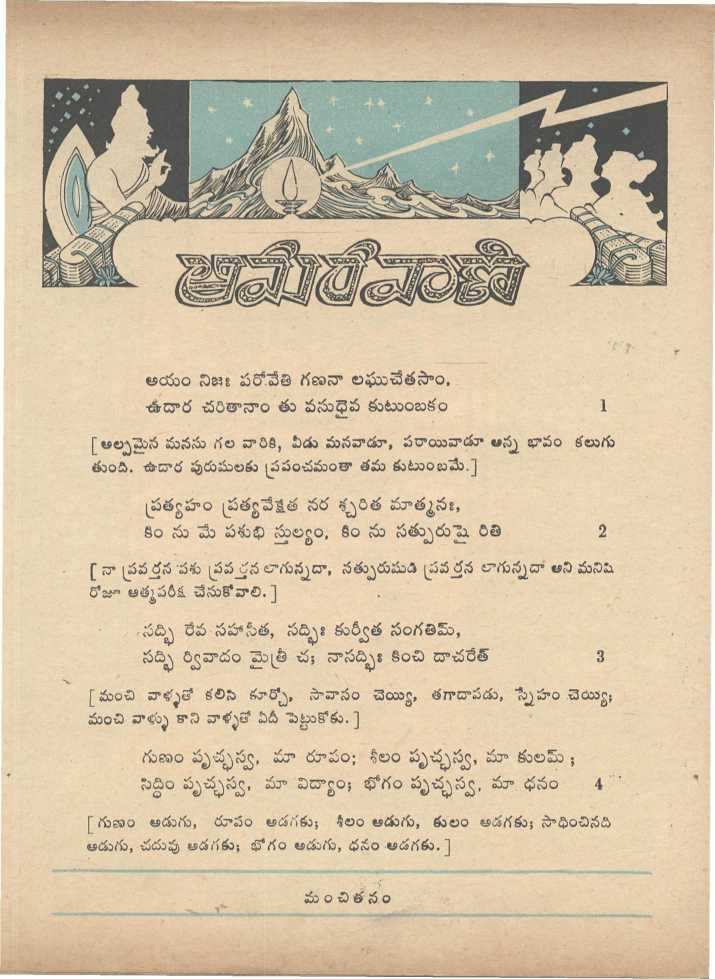 అమరవాణి
అయం నిజః పరోవేతి గణనా లఘుచేతసాం,
ఉదార చరితానాం తు వసుధైవ కుటుంబకం 1
[అల్పమైన మనసు గల వారికి, వీడు మనవాడూ, పరాయివాడూ అన్న భావం కలుగు
తుంది. ఉదార పురుషులకు ప్రపంచమంతా తమ కుటుంబమే.]
ప్రత్యహం ప్రత్యవేక్షేత నర శ్చరిత మాత్మనః,
కిం ను మే పశుభి స్తుల్యం, కిం ను సత్పురుషై రితి 2
[నా ప్రవర్తన పశు ప్రవర్తన లాగున్నదా, సత్పురుషుడి ప్రవర్తన లాగున్నదా అని మనిషి
రోజూ ఆత్మపరీక్ష చేసుకోవాలి.]
సద్భి రేవ సహాసీత, సద్భిః కుర్వీత సంగతిమ్,
సద్భి ర్వివాదం మైత్రీ చ; నాసద్భిః కించి దాచరేత్ 3
[మంచి వాళ్ళతో కలిసి కూర్చో, సావాసం చెయ్యి, తగాదాపడు, స్నేహం చెయ్యి;
మంచి వాళ్ళు కాని వాళ్ళతో ఏదీ పెట్టుకోకు.]
గుణం పృచ్ఛస్వ, మా రూపం; శీలం పృచ్ఛస్వ, మా కులమ్;
సిద్ధిం పృచ్ఛస్వ, మా విద్యాం; భోగం పృచ్ఛస్వ, మా ధనం 4
[గుణం అడుగు, రూపం అడగకు; శీలం అడుగు, కులం అడగకు; సాధించినది
అడుగు, చదువు అడగకు; భోగం అడుగు, ధనం అడగకు.]
మంచితనం